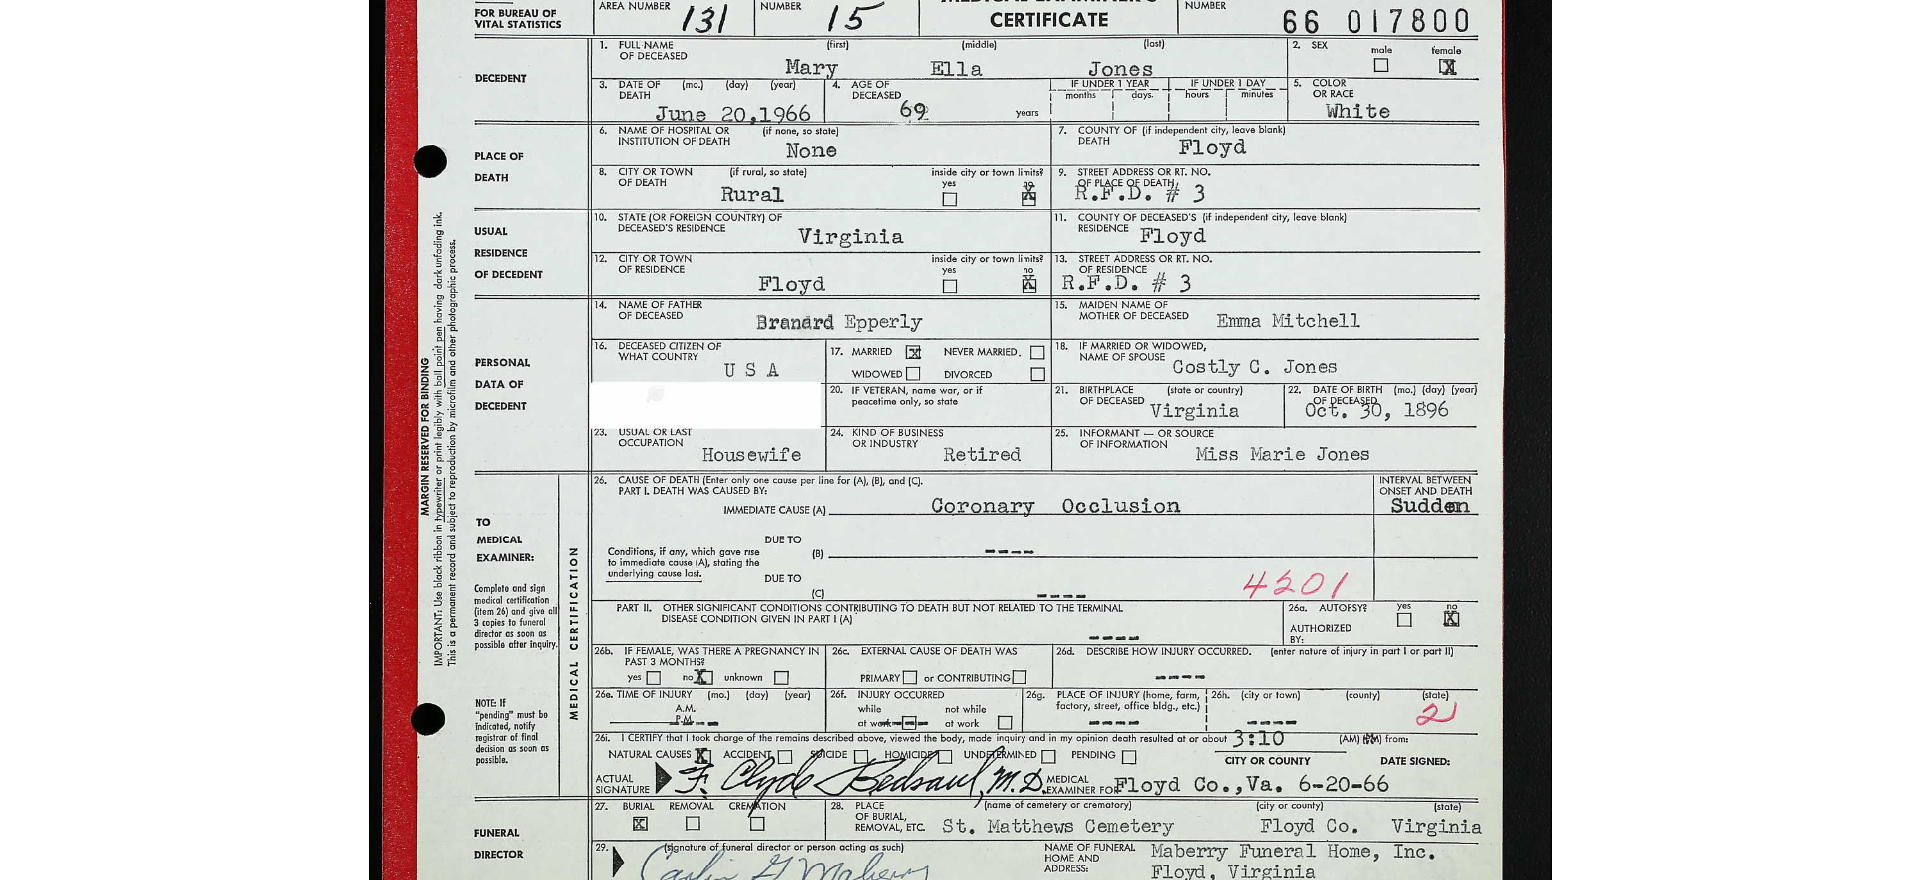 FOR BUREAU OF VITAL STATISTICS
AREA NUMBER 131
NUMBER 15
CERTIFICATE
NUMBER 66 017800
DECEDENT
1. FULL NAME OF DECEASED (first) (middle) (last)
Mary Ella Jones
2. SEX male female X
3. DATE OF DEATH (mo.) (day) (year)
June 20,1966
4. AGE OF DECEASED 69 years
IF UNDER 1 YEAR months days
IF UNDER 1 DAY hours minutes
5. COLOR OR RACE
White
PLACE OF DEATH
6. NAME OF HOSPITAL OR INSTITUTION OF DEATH (if none, so state)
None
7. COUNTY OF DEATH (if independent city, leave blank)
Floyd
8. CITY OR TOWN OF DEATH (if rural, so state)
Rural
inside city or town limits? yes no X
9. STREET ADDRESS OR RT. NO. OF PLACE OF DEATH
R.F.D. # 3
USUAL RESIDENCE OF DECEDENT
10. STATE (OR FOREIGN COUNTRY) OF DECEASED'S RESIDENCE
Virginia
11. COUNTY OF DECEASED'S RESIDENCE (if independent city, leave blank)
Floyd
12. CITY OR TOWN OF RESIDENCE
Floyd
inside city or town limits? yes no X
13. STREET ADDRESS OR RT. NO. OF RESIDENCE
R.F.D. # 3
PERSONAL DATA OF DECEDENT
14. NAME OF FATHER OF DECEASED
Branard Epperly
15. MAIDEN NAME OF MOTHER OF DECEASED
Emma Mitchell
16. DECEASED CITIZEN OF WHAT COUNTRY
U S A
17. MARRIED X NEVER MARRIED.
WIDOWED DIVORCED
18. IF MARRIED OR WIDOWED, NAME OF SPOUSE
Costly C. Jones
20. IF VETERAN, name war, or if peacetime only, so state
21. BIRTHPLACE OF DECEASED (state or country)
Virginia
22. DATE OF BIRTH OF DECEASED (mo.) (day) (year)
Oct. 30, 1896
23. USUAL OR LAST OCCUPATION
Housewife
24. KIND OF BUSINESS OR INDUSTRY
Retired
25. INFORMANT — OR SOURCE OF INFORMATION
Miss Marie Jones
MARGIN RESERVED FOR BINDING
IMPORTANT: Use black ribbon in typewriter or print legibly with ball point pen having dark unfading ink.
This is a permanent record and subject to reproduction by microfilm and other photographic process.
TO MEDICAL EXAMINER:
Complete and sign medical certification (item 26) and give all 3 copies to funeral director as soon as possible after inquiry.
NOTE: If "pending" must be indicated, notify registrar of final decision as soon as possible.
MEDICAL CERTIFICATION
26. CAUSE OF DEATH (Enter only one cause per line for (A), (B), and (C).
PART I. DEATH WAS CAUSED BY:
IMMEDIATE CAUSE (A) Coronary Occlusion
INTERVAL BETWEEN ONSET AND DEATH
Sudden
DUE TO
Conditions, if any, which gave rise to immediate cause (A), stating the underlying cause last.
(B) ----
DUE TO
(C) ----
4201
PART II. OTHER SIGNIFICANT CONDITIONS CONTRIBUTING TO DEATH BUT NOT RELATED TO THE TERMINAL DISEASE CONDITION GIVEN IN PART I (A)
----
26a. AUTOPSY? yes no X
AUTHORIZED BY:
26b. IF FEMALE, WAS THERE A PREGNANCY IN PAST 3 MONTHS?
yes no X unknown
26c. EXTERNAL CAUSE OF DEATH WAS
PRIMARY or CONTRIBUTING
26d. DESCRIBE HOW INJURY OCCURRED. (enter nature of injury in part I or part II)
----
26e. TIME OF INJURY (mo.) (day) (year)
A.M.
P.M. ----
26f. INJURY OCCURRED
while at work ---- not while at work
26g. PLACE OF INJURY (home, farm, factory, street, office bldg., etc.)
----
26h. (city or town) (county) (state)
---- 2
26i. I CERTIFY that I took charge of the remains described above, viewed the body, made inquiry and in my opinion death resulted at or about 3:10 (AM) (PM) from:
NATURAL CAUSES X ACCIDENT SUICIDE HOMICIDE UNDETERMINED PENDING
CITY OR COUNTY DATE SIGNED:
ACTUAL SIGNATURE F. Clyde Bedsaul, M.D.
MEDICAL EXAMINER FOR Floyd Co.,Va. 6-20-66
FUNERAL DIRECTOR
27. BURIAL X REMOVAL CREMATION
28. PLACE OF BURIAL, REMOVAL, ETC. (name of cemetery or crematory) (city or county) (state)
St. Matthews Cemetery Floyd Co. Virginia
29. (signature of funeral director or person acting as such)
NAME OF FUNERAL HOME AND ADDRESS:
Maberry Funeral Home, Inc.
Floyd, Virginia